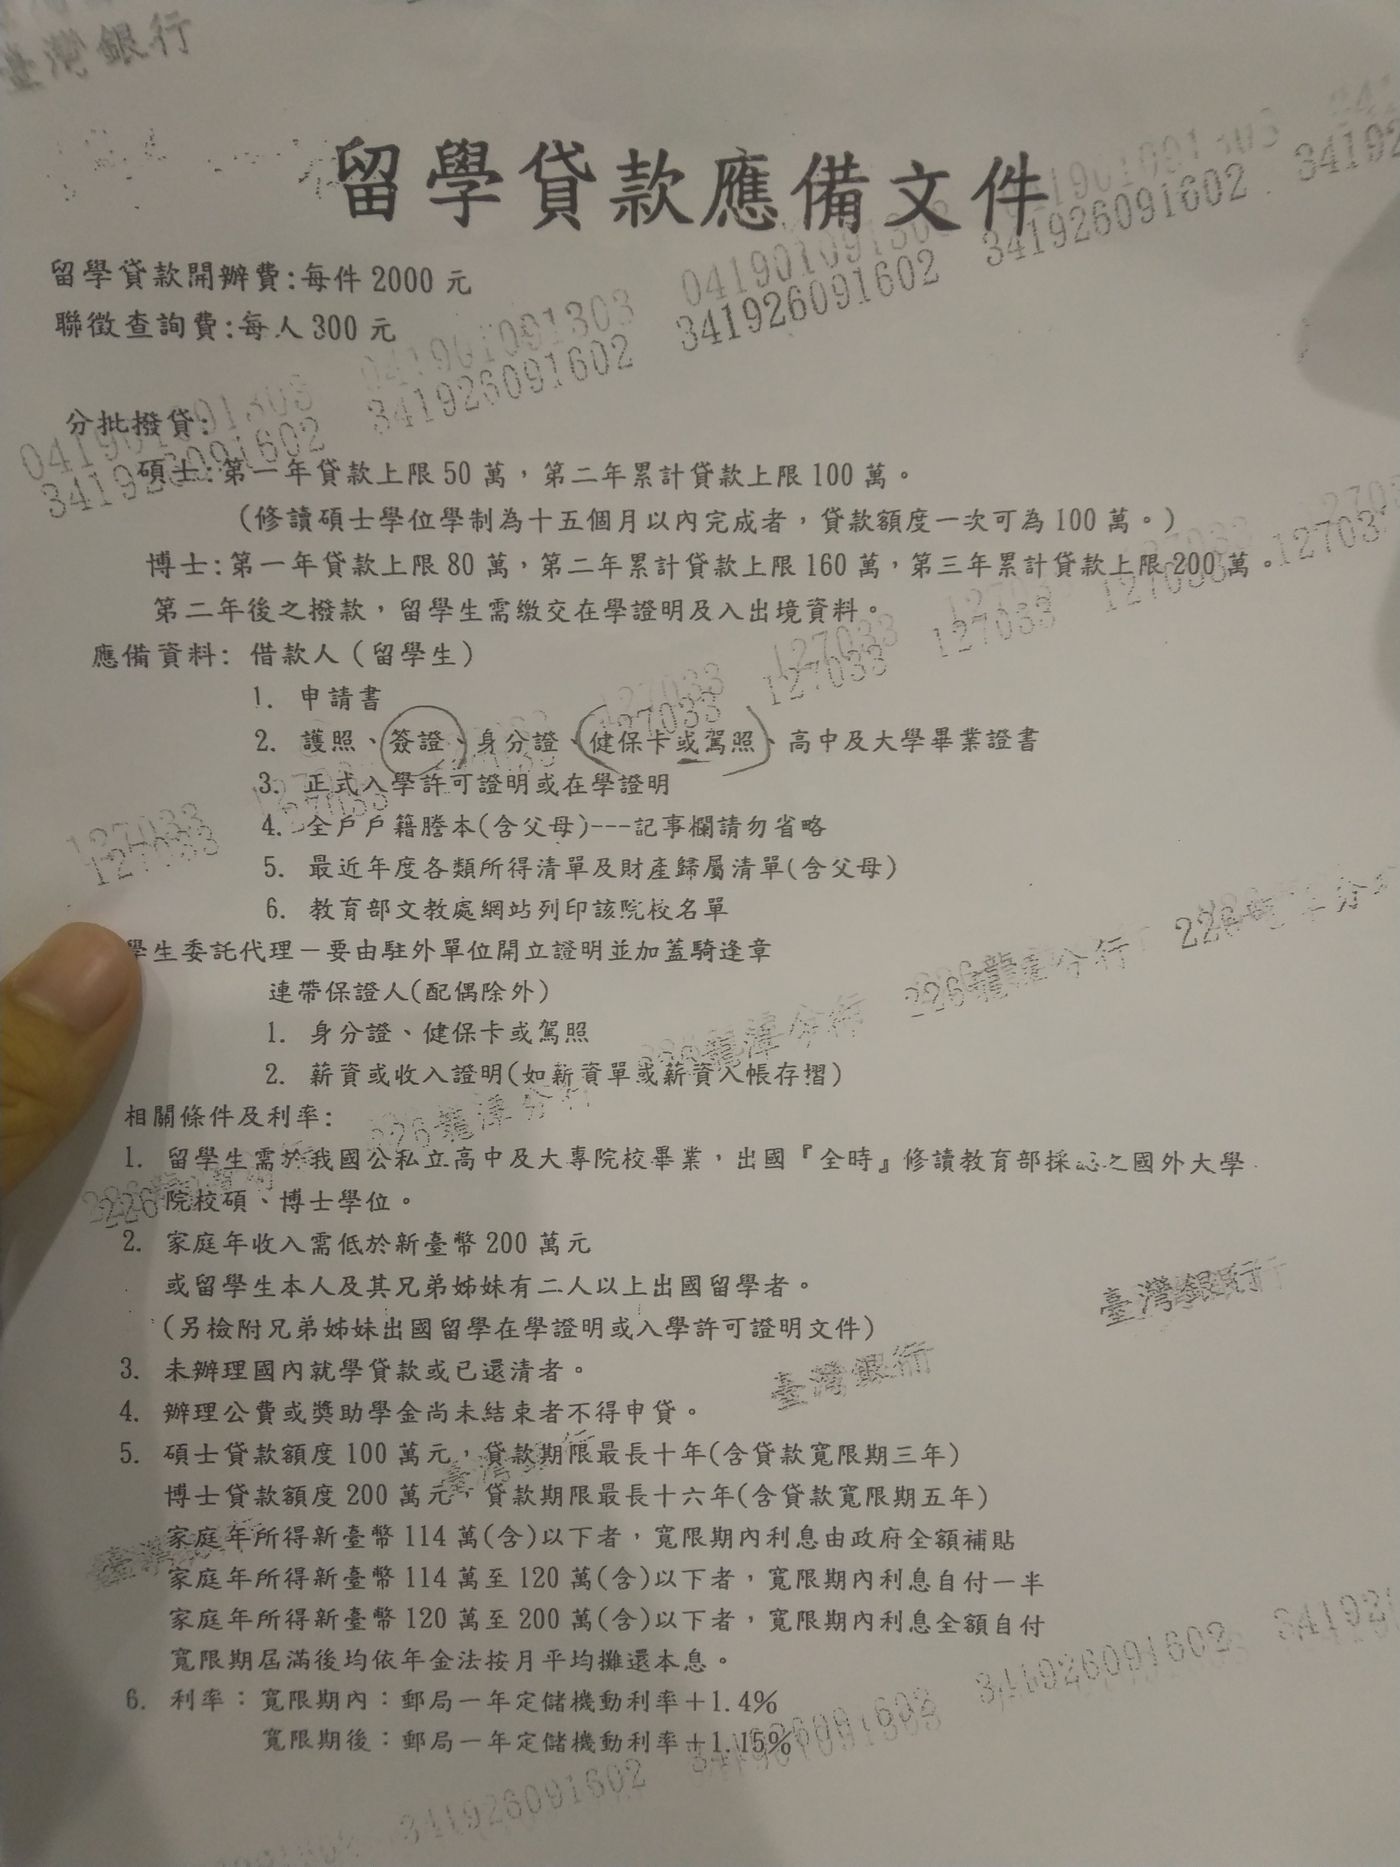 臺灣銀行
留學貸款應備文件
留學貸款開辦費:每件 2000 元
聯徵查詢費:每人 300 元
041901091303 041901091303 041901091303 041901091303
341926091602 341926091602 341926091602 341926091602 34192
分批撥貸:
碩士:第一年貸款上限 50 萬，第二年累計貸款上限 100 萬。
(修讀碩士學位學制為十五個月以內完成者，貸款額度一次可為 100 萬。)
博士:第一年貸款上限 80 萬，第二年累計貸款上限 160 萬，第三年累計貸款上限 200 萬。
第二年後之撥款，留學生需繳交在學證明及入出境資料。
127033 127033 127033 127033 127033 127033
應備資料: 借款人（留學生）
1. 申請書
2. 護照、簽證、身分證、健保卡或駕照、高中及大學畢業證書
3. 正式入學許可證明或在學證明
4. 全戶戶籍謄本(含父母)---記事欄請勿省略
5. 最近年度各類所得清單及財產歸屬清單(含父母)
6. 教育部文教處網站列印該院校名單
學生委託代理－要由駐外單位開立證明並加蓋騎逢章
連帶保證人(配偶除外)
1. 身分證、健保卡或駕照
2. 薪資或收入證明(如薪資單或薪資入帳存摺)
226龍潭分行 226龍潭分行 226龍潭分行
相關條件及利率:
1. 留學生需於我國公私立高中及大專院校畢業，出國『全時』修讀教育部採認之國外大學
院校碩、博士學位。
2. 家庭年收入需低於新臺幣 200 萬元
或留學生本人及其兄弟姊妹有二人以上出國留學者。
(另檢附兄弟姊妹出國留學在學證明或入學許可證明文件)
3. 未辦理國內就學貸款或已還清者。
4. 辦理公費或獎助學金尚未結束者不得申貸。
臺灣銀行 臺灣銀行 臺灣銀行 臺灣銀行
5. 碩士貸款額度 100 萬元，貸款期限最長十年(含貸款寬限期三年)
博士貸款額度 200 萬元，貸款期限最長十六年(含貸款寬限期五年)
家庭年所得新臺幣 114 萬(含)以下者，寬限期內利息由政府全額補貼
家庭年所得新臺幣 114 萬至 120 萬(含)以下者，寬限期內利息自付一半
家庭年所得新臺幣 120 萬至 200 萬(含)以下者，寬限期內利息全額自付
寬限期屆滿後均依年金法按月平均攤還本息。
6. 利率：寬限期內：郵局一年定儲機動利率＋1.4%
寬限期後：郵局一年定儲機動利率＋1.15%
341926091602 341926091602 341926091602